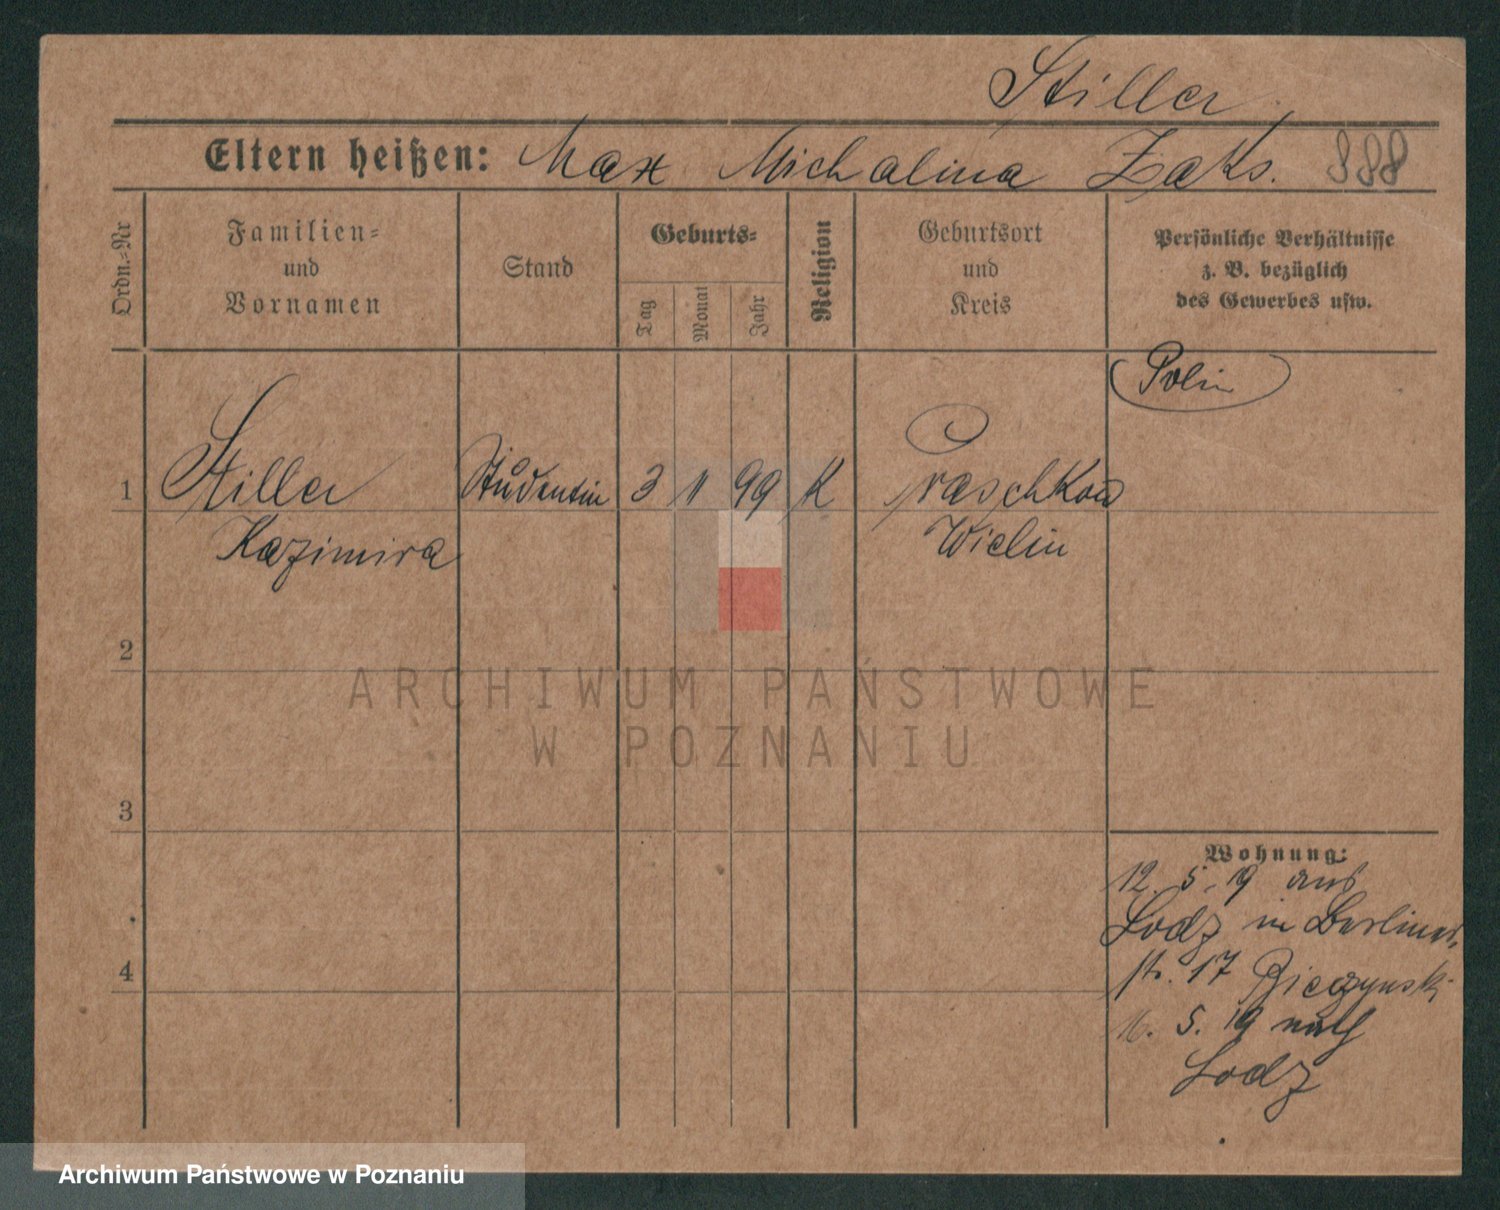 Stiller
Eltern heißen: Max Michalina Zaks. 888
Ordn.-Nr
Familien-
und
Vornamen
Stand
Geburts-
Tag
Monat
Jahr
Religion
Geburtsort
und
Kreis
Persönliche Verhältnisse
z. B. bezüglich
des Gewerbes usw.
Polin
1 Stiller Studentin 3 11 99 K Praschkow
Kazimira Wielin
2
3
4
ARCHIWUM PAŃSTWOWE
W POZNANIU
Wohnung:
12. 5. 19 aus
Lodz in Berliner-
str. 17
16. 5. 19 nach
Lodz
Archiwum Państwowe w Poznaniu